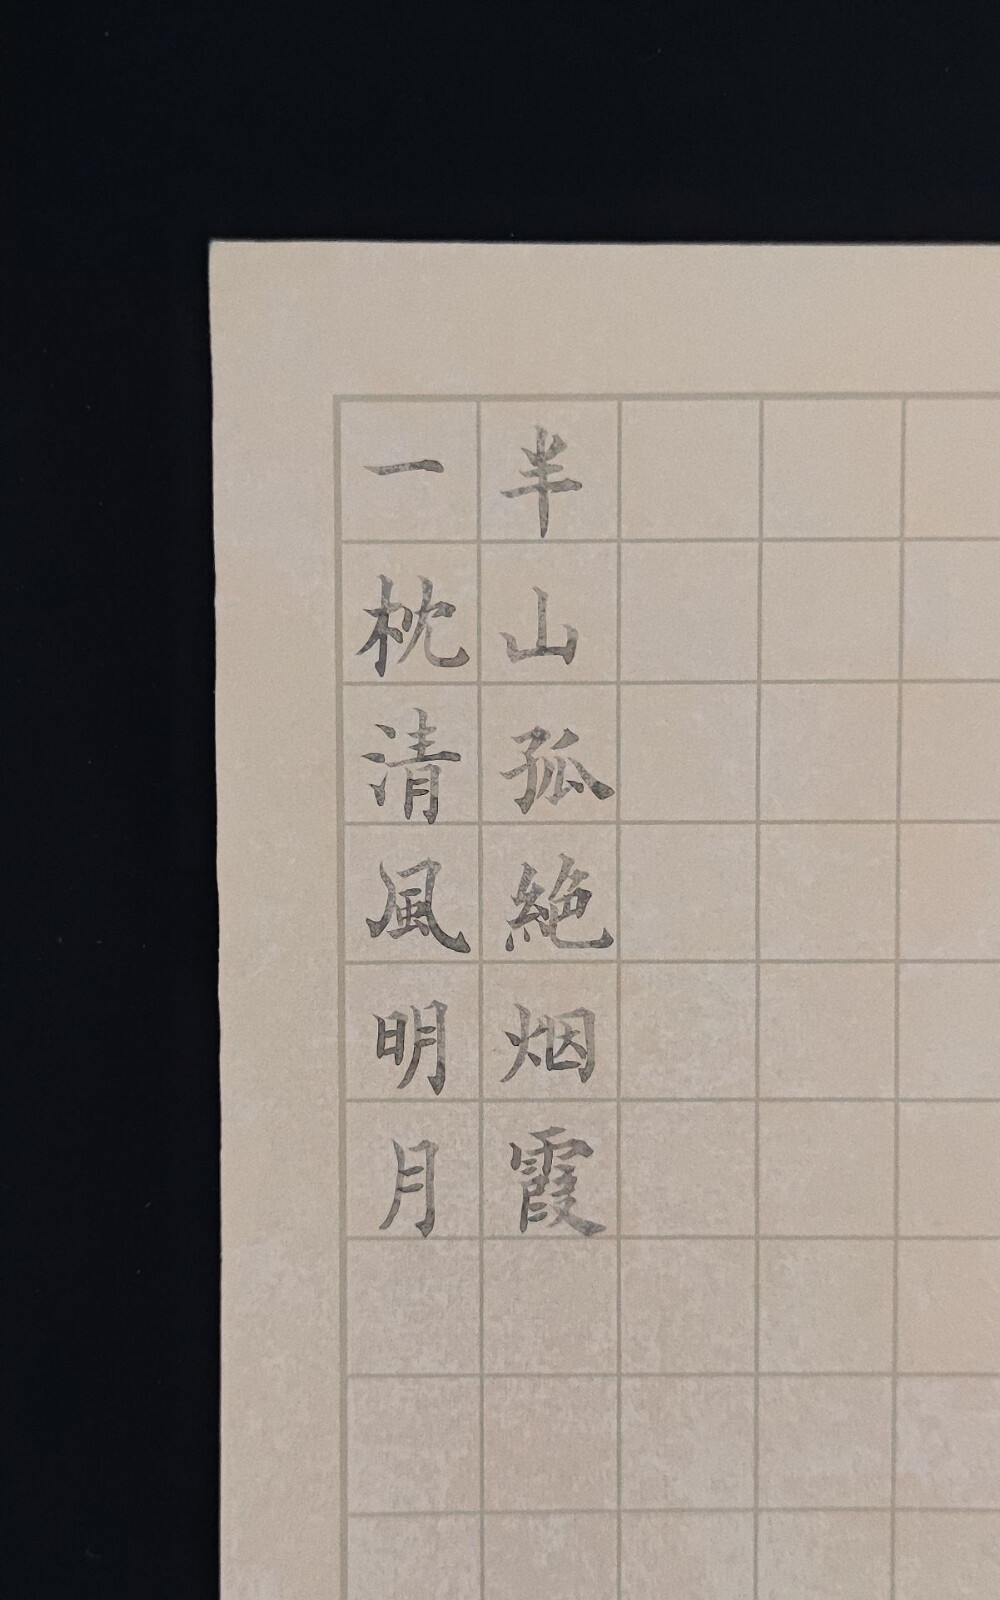 一枕清風明月
半山孤絶烟霞